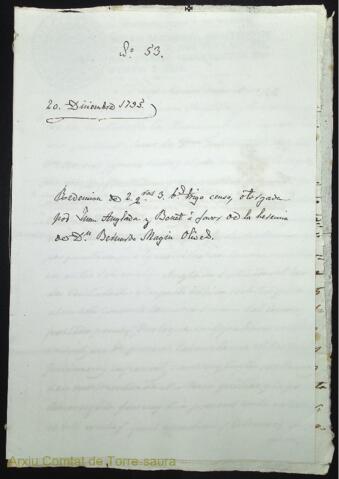 Nº 53.
20. Diciembre 1793
Redencion de 2 qras 3. bs trigo censo, otorgada
por Juan Anglada y Bonet á favor de la herencia
de Dn. Bernardo Magin Olives.
Arxiu Comtat de Torre-saura